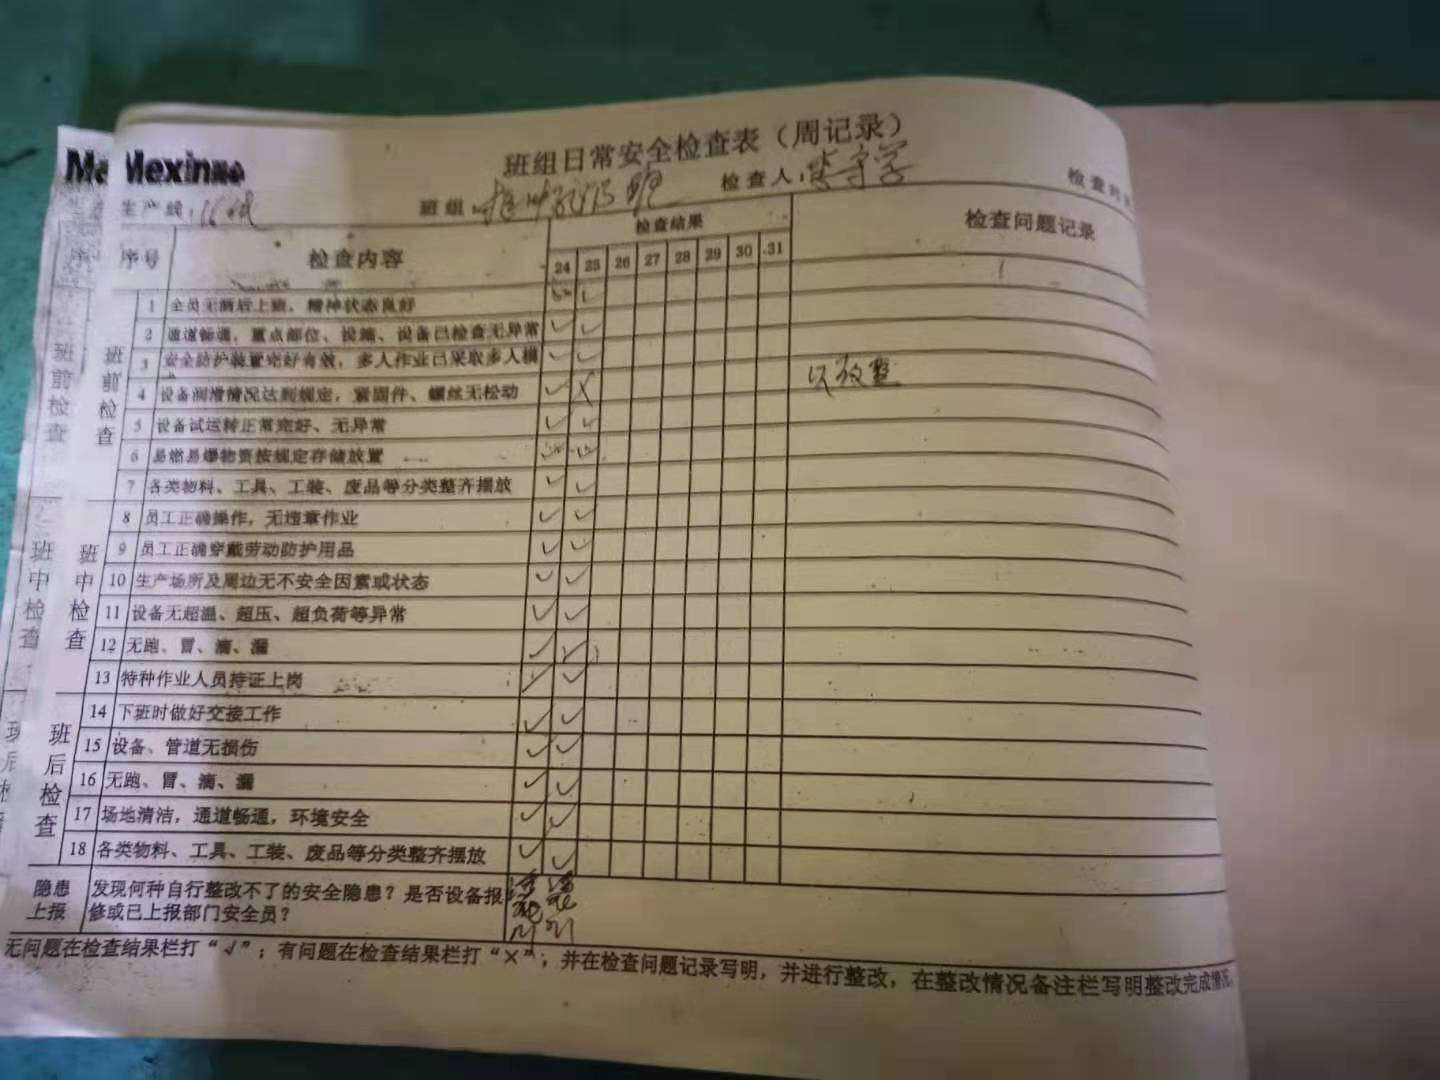 Mexin
班组日常安全检查表（周记录）
生产线：
班组：
检查人：李守学
检查时
序号 检查内容 检查结果 检查问题记录
24 25 26 27 28 29 30 31
班前检查
1 全员无酒后上班，精神状态良好
2 通道畅通，重点部位、设施、设备已检查无异常
3 安全防护装置完好有效，多人作业已采取多人模
4 设备润滑情况达到规定，紧固件、螺丝无松动 ✓ X
5 设备试运转正常完好、无异常 ✓ ✓
6 易燃易爆物资按规定存储放置
7 各类物料、工具、工装、废品等分类整齐摆放 ✓ ✓
班中检查
8 员工正确操作，无违章作业 ✓ ✓
9 员工正确穿戴劳动防护用品 ✓ ✓
10 生产场所及周边无不安全因素或状态 ✓ ✓
11 设备无超温、超压、超负荷等异常 ✓ ✓
12 无跑、冒、滴、漏 ✓ ✓
13 特种作业人员持证上岗 ／ ✓
班后检查
14 下班时做好交接工作 ✓ ✓
15 设备、管道无损伤 ✓ ✓
16 无跑、冒、滴、漏 ✓ ✓
17 场地清洁，通道畅通，环境安全 ✓ ✓
18 各类物料、工具、工装、废品等分类整齐摆放 ✓ ✓
隐患上报
发现何种自行整改不了的安全隐患？是否设备报
修或已上报部门安全员？
无问题在检查结果栏打“√”；有问题在检查结果栏打“×”，并在检查问题记录写明，并进行整改，在整改情况备注栏写明整改完成情况。